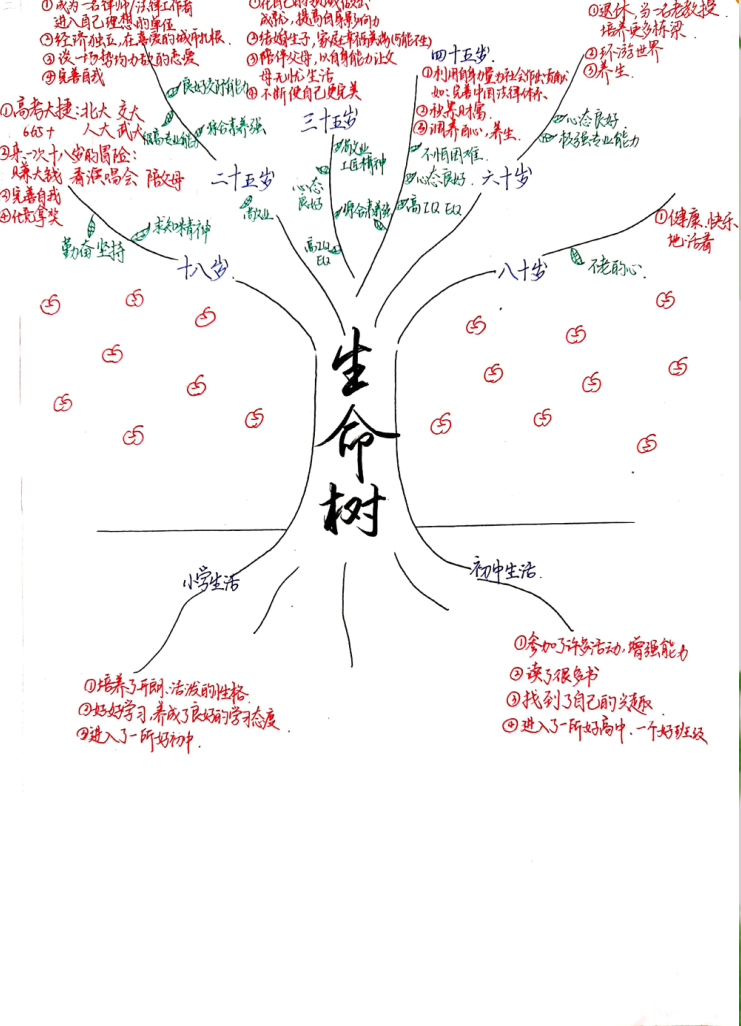 ①成为一名律师/法律工作者
进入自己理想的单位
②经济独立,在喜爱的城市扎根
③谈一场势均力敌的恋爱
④完善自我
良好交时能力
极高专业能力
综合素养强
二十五岁
敬业
成就,提高自身影响力
②结婚生子,家庭幸福美满(可能不生)
③陪伴父母,以自身能力让父
母无忧生活
④不断使自己更完美
三十五岁
敬业
工匠精神
心态
良好
综合素养强
高IQ
EQ
四十五岁
①利用自身力量为社会作出贡献
如:完善中国法律体系
②积累财富
③调养身心,养生
不怕困难
心态良好
高IQ EQ
①退休,当一名老教授
培养更多栋梁
②环游世界
③养生
心态良好
较强专业能力
六十岁
①高考大捷:北大 交大
665+ 人大 武大
②来一次十八岁的冒险:
赚大钱 看演唱会 陪父母
③完善自我
④化竞拿奖
勤奋 坚持
求知精神
十八岁
①健康、快乐
地活着
不老的心
八十岁
生
命
树
小学生活
初中生活
①培养了开朗、活泼的性格
②好好学习,养成了良好的学习态度
③进入了一所好初中.
①参加了许多活动,增强能力
②读了很多书
③找到了自己的兴趣
④进入了一所好高中.一个好班级